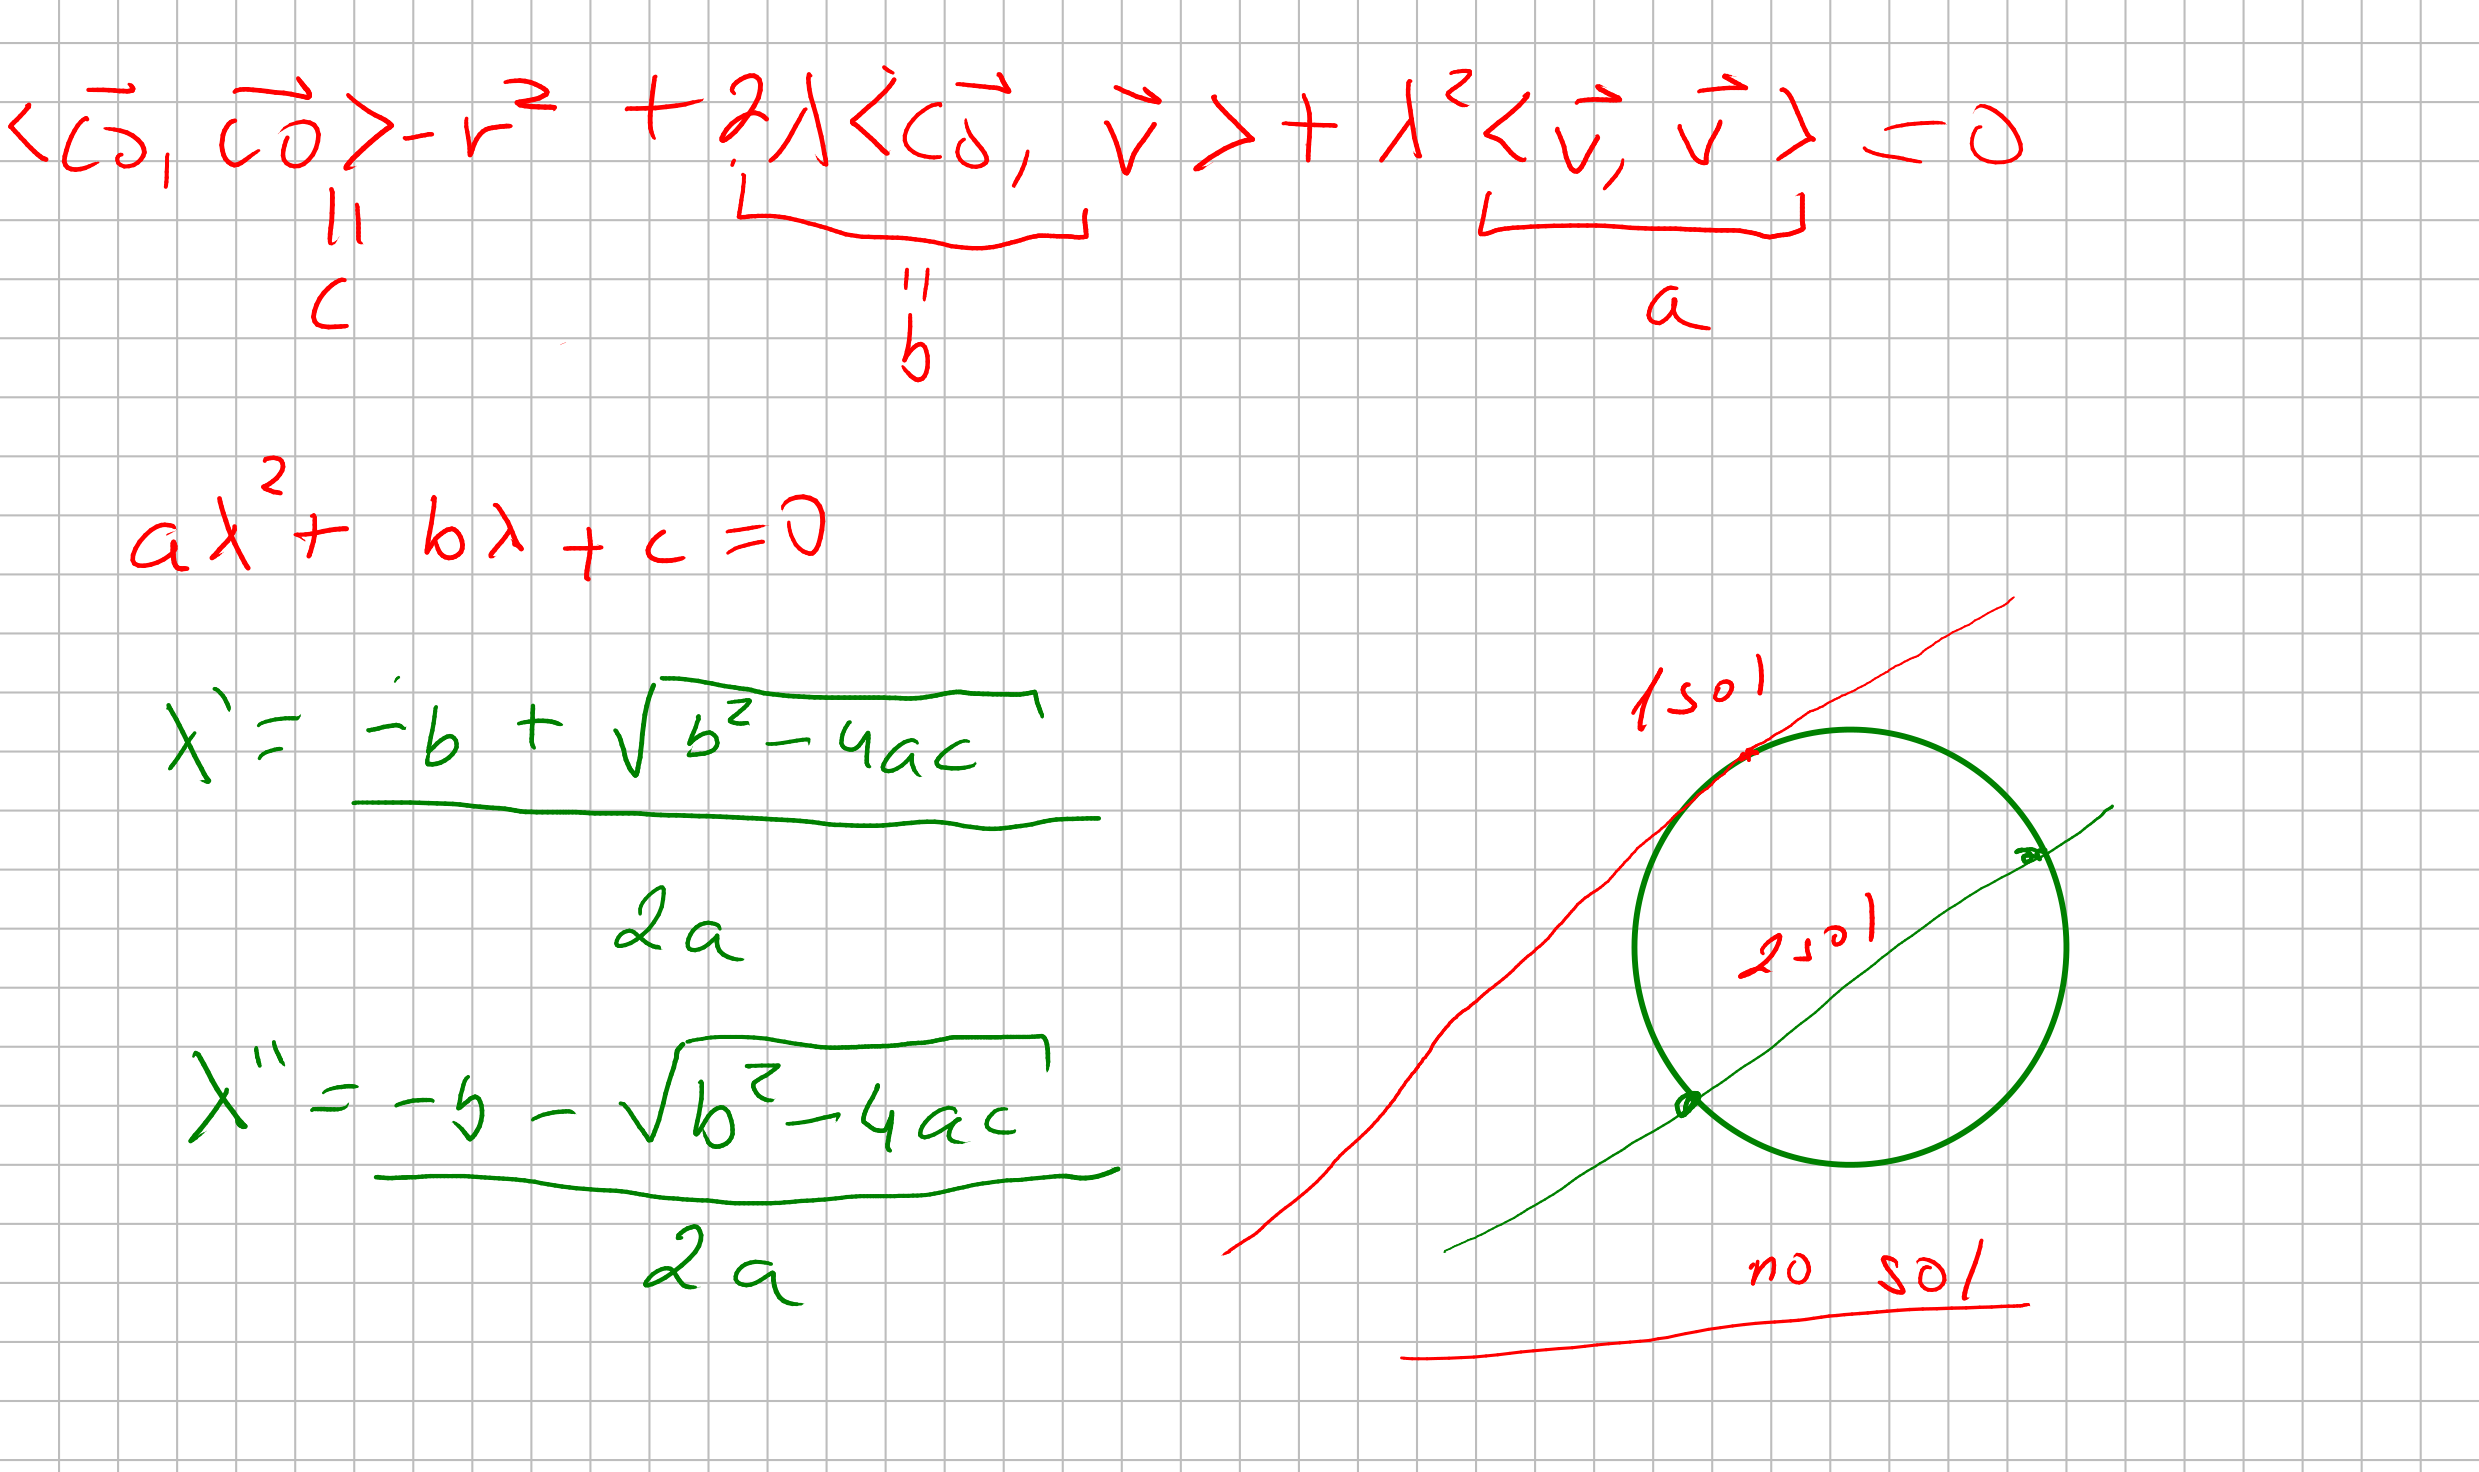 <\vec{co}, \vec{co}> - r² + 2λ<\vec{co}, \vec{v}> + λ²<\vec{v}, \vec{v}> = 0
||
c
||
b
a
aλ² + bλ + c = 0
λ' = -b + √(b² - 4ac)
2a
λ'' = -b - √(b² - 4ac)
2a
1 sol
2 sol
no sol